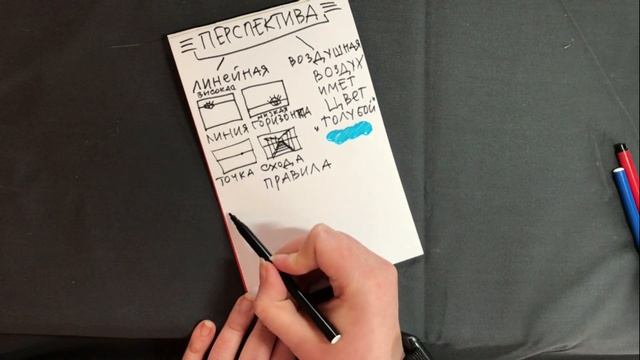 ПЕРСПЕКТИВА
ЛИНЕЙНАЯ
ВЫСОКАЯ
НИЗКАЯ
ЛИНИЯ ГОРИЗОНТА
ТОЧКА СХОДА
ПРАВИЛА
ВОЗДУШНАЯ
ВОЗДУХ
ИМЕТ
ЦВЕТ
"ГОЛУБОЙ"